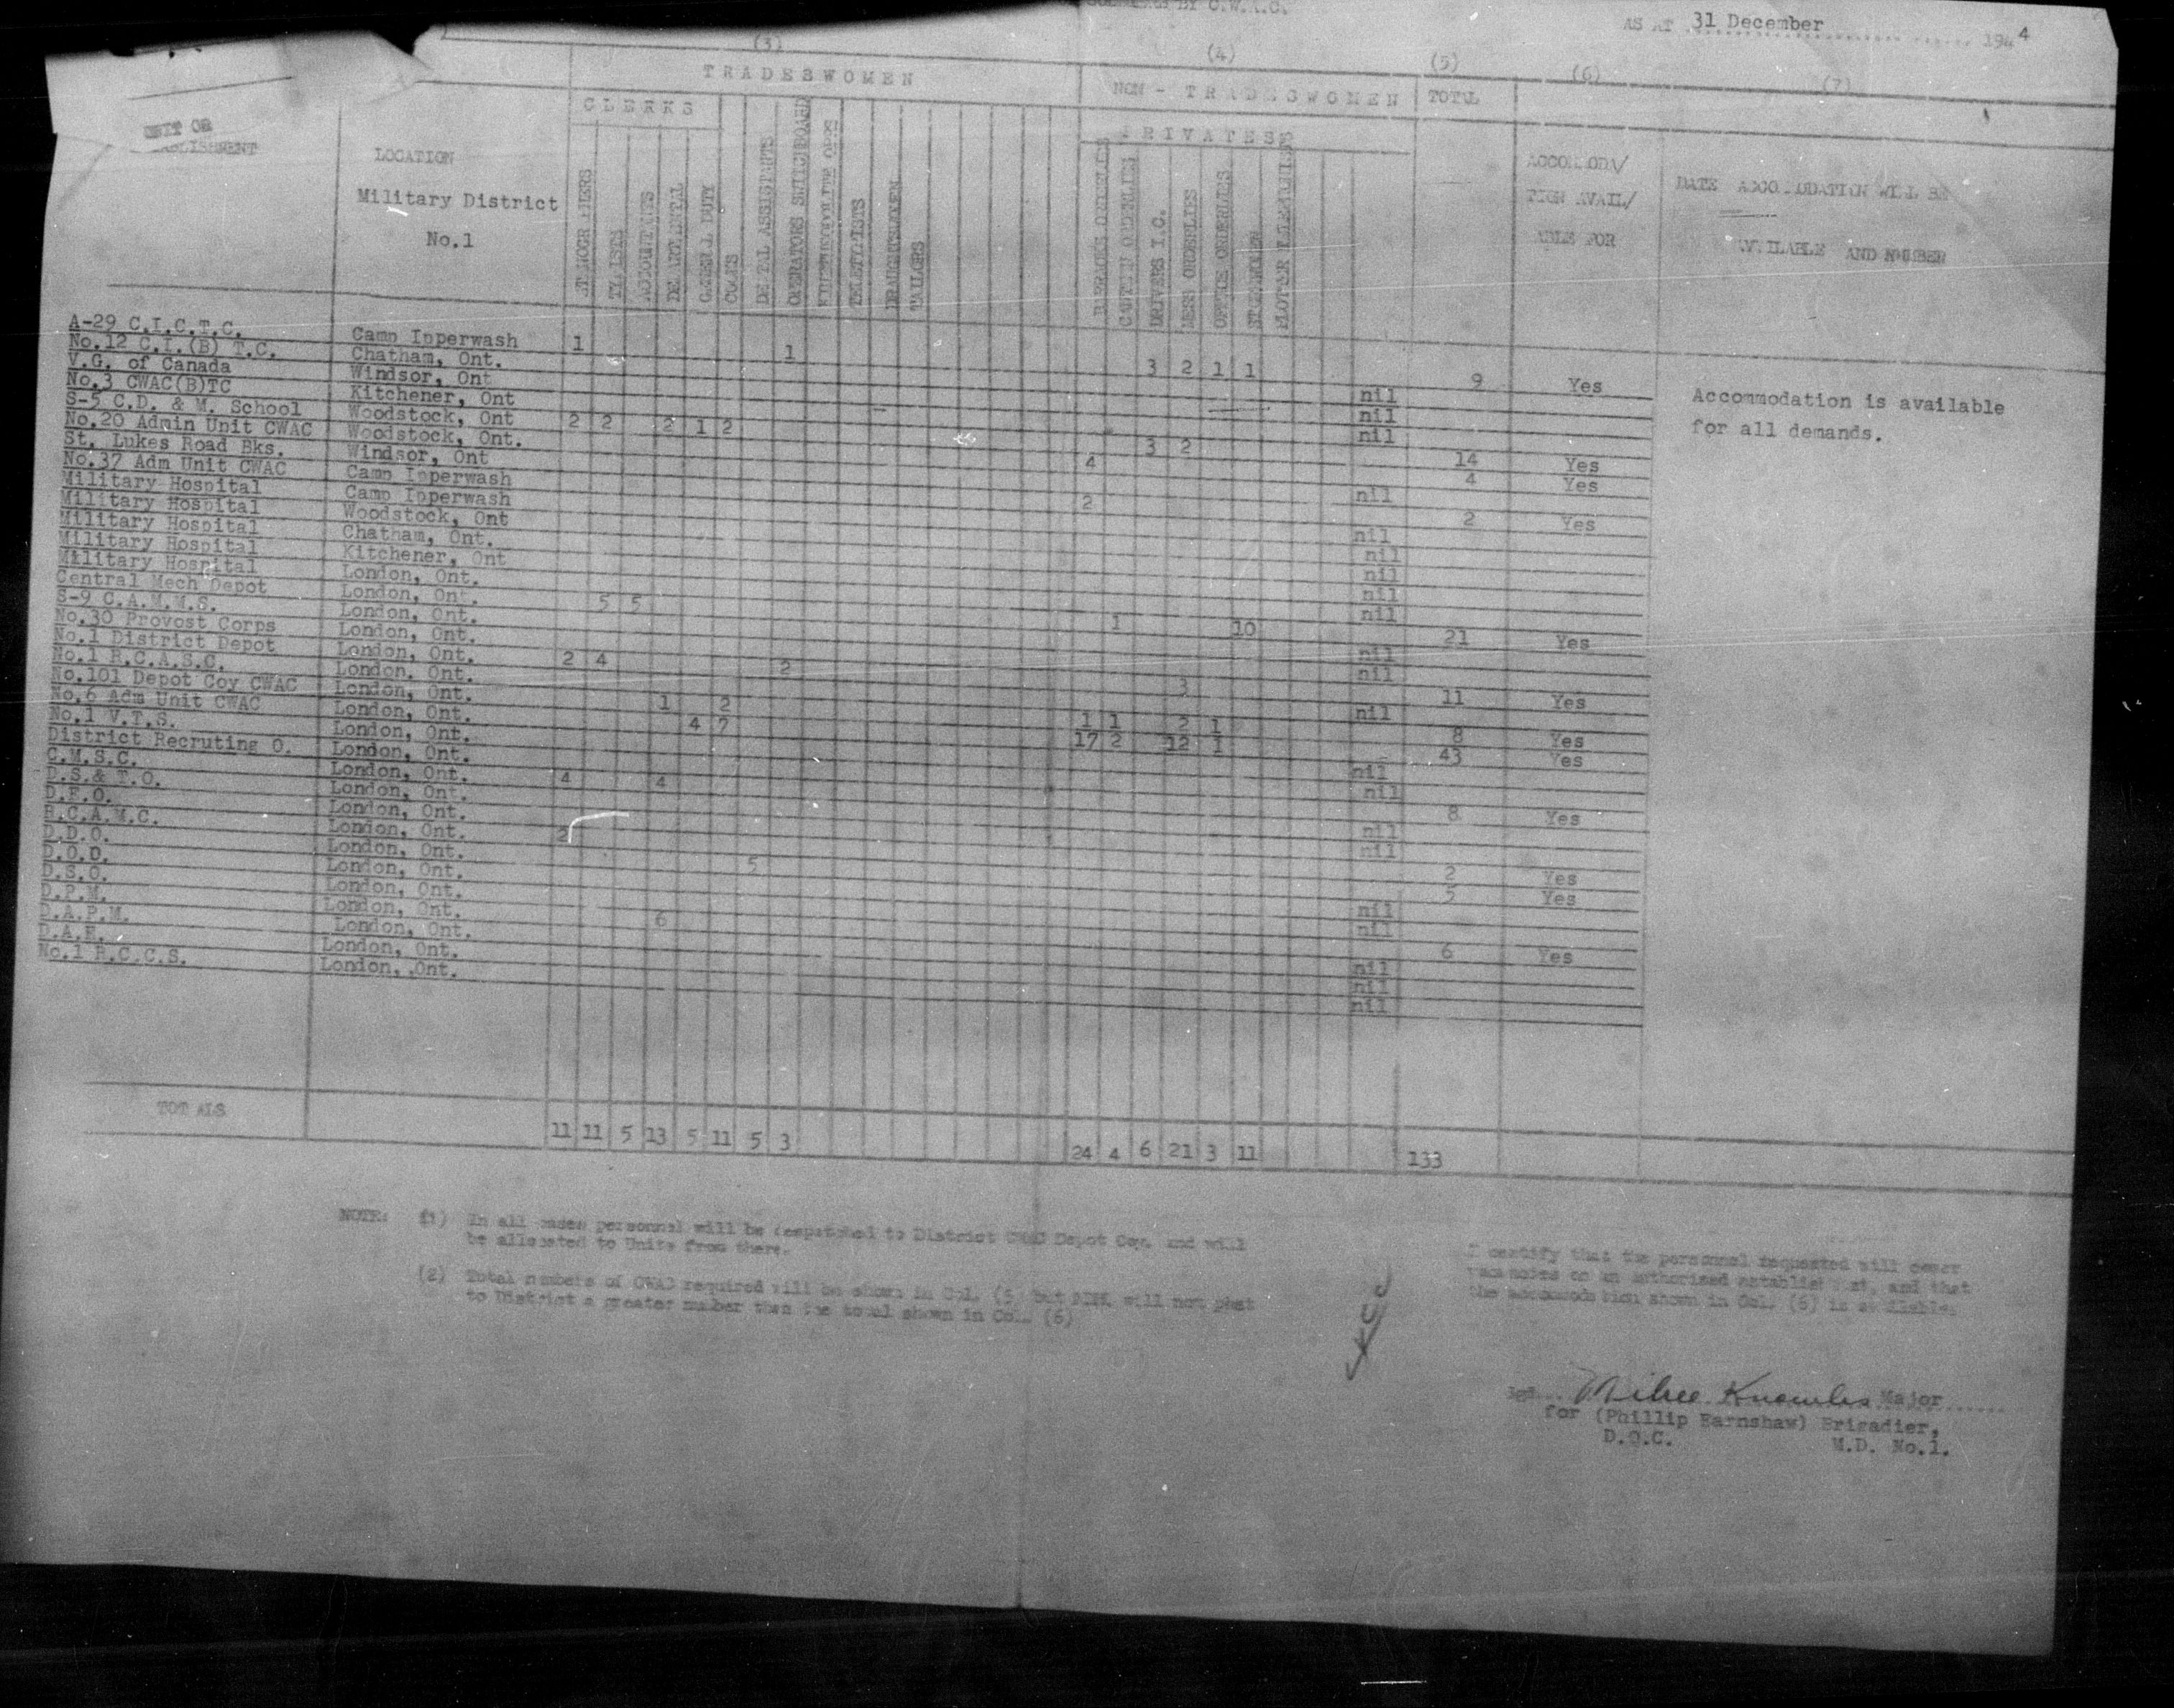 BY C.W.A.C.
AS AT 31 December 1944
(3) (4) (5) (6) (7)
TRADESWOMEN NON - TRADESWOMEN TOTAL
CLERKS PRIVATES
UNIT OR
LOCATION
Military District
No.1
STENOGRAPHERS
TYPISTS
ACCOUNTANTS
DEPARTMENTAL
GENERAL DUTY
COOKS
DENTAL ASSISTANTS
OPERATORS SWITCHBOARD
TELETYPISTS
DRAUGHTSWOMEN
TAILORS
BARRACKS ORDERLIES
CANTEEN ORDERLIES
DRIVERS I.C.
MESS ORDERLIES
OFFICE ORDERLIES
STOREWOMEN
ACCOMODA/
TION AVAIL/
ABLE FOR
DATE ACCOMODATION WILL BE
AVAILABLE AND NUMBER
A-29 C.I.C.T.C. Camp Ipperwash 1 1 3 2 1 1 9 Yes
No.12 C.I.(B) T.C. Chatham, Ont. nil
V.G. of Canada Windsor, Ont nil
No.3 CWAC(B)TC Kitchener, Ont nil
S-5 C.D. & M. School Woodstock, Ont 2 2 2 1 2 3 2 14 Yes
No.20 Admin Unit CWAC Woodstock, Ont. 4 4 Yes
St. Lukes Road Bks. Windsor, Ont nil
No.37 Adm Unit CWAC Camp Ipperwash 2 2 Yes
Military Hospital Camp Ipperwash nil
Military Hospital Woodstock, Ont nil
Military Hospital Chatham, Ont. nil
Military Hospital Kitchener, Ont nil
Military Hospital London, Ont. nil
Central Mech Depot London, Ont. 5 5 1 10 21 Yes
S-9 C.A.M.M.S. London, Ont. nil
No.30 Provost Corps London, Ont. nil
No.1 District Depot London, Ont. 2 4 2 3 11 Yes
No.1 R.C.A.S.C. London, Ont. nil
No.101 Depot Coy CWAC London, Ont. 1 2 1 1 2 1 8 Yes
No.6 Adm Unit CWAC London, Ont. 4 7 17 2 12 1 43 Yes
No.1 V.T.S. London, Ont. nil
District Recruting O. London, Ont. nil
C.M.S.C. London, Ont. 4 4 8 Yes
D.S.& T.O. London, Ont. nil
D.E.O. London, Ont. nil
R.C.A.M.C. London, Ont. 2 2 Yes
D.D.O. London, Ont. 5 5 Yes
D.O.D. London, Ont. nil
D.S.O. London, Ont. nil
D.P.M. London, Ont. 6 6 Yes
D.A.P.M. London, Ont. nil
D.A.E. London, Ont. nil
No.1 R.C.C.S. London, Ont. nil
Accommodation is available
for all demands.
TOTALS 11 11 5 13 5 11 5 3 24 4 6 21 3 11 133
NOTE: (1) In all cases personnel will be despatched to District CWAC Depot Coy. and will
be allocated to Units from there.
(2) Total numbers of CWAC required will be shown in Col. (5) but NDHQ will not post
to District a greater number than the total shown in Col. (6)
I certify that the personnel requested will cover
vacancies on an authorised establishment, and that
the accommodation shown in Col. (6) is available.
Sgd... Knowles Major
for (Phillip Earnshaw) Brigadier,
D.O.C. M.D. No.1.